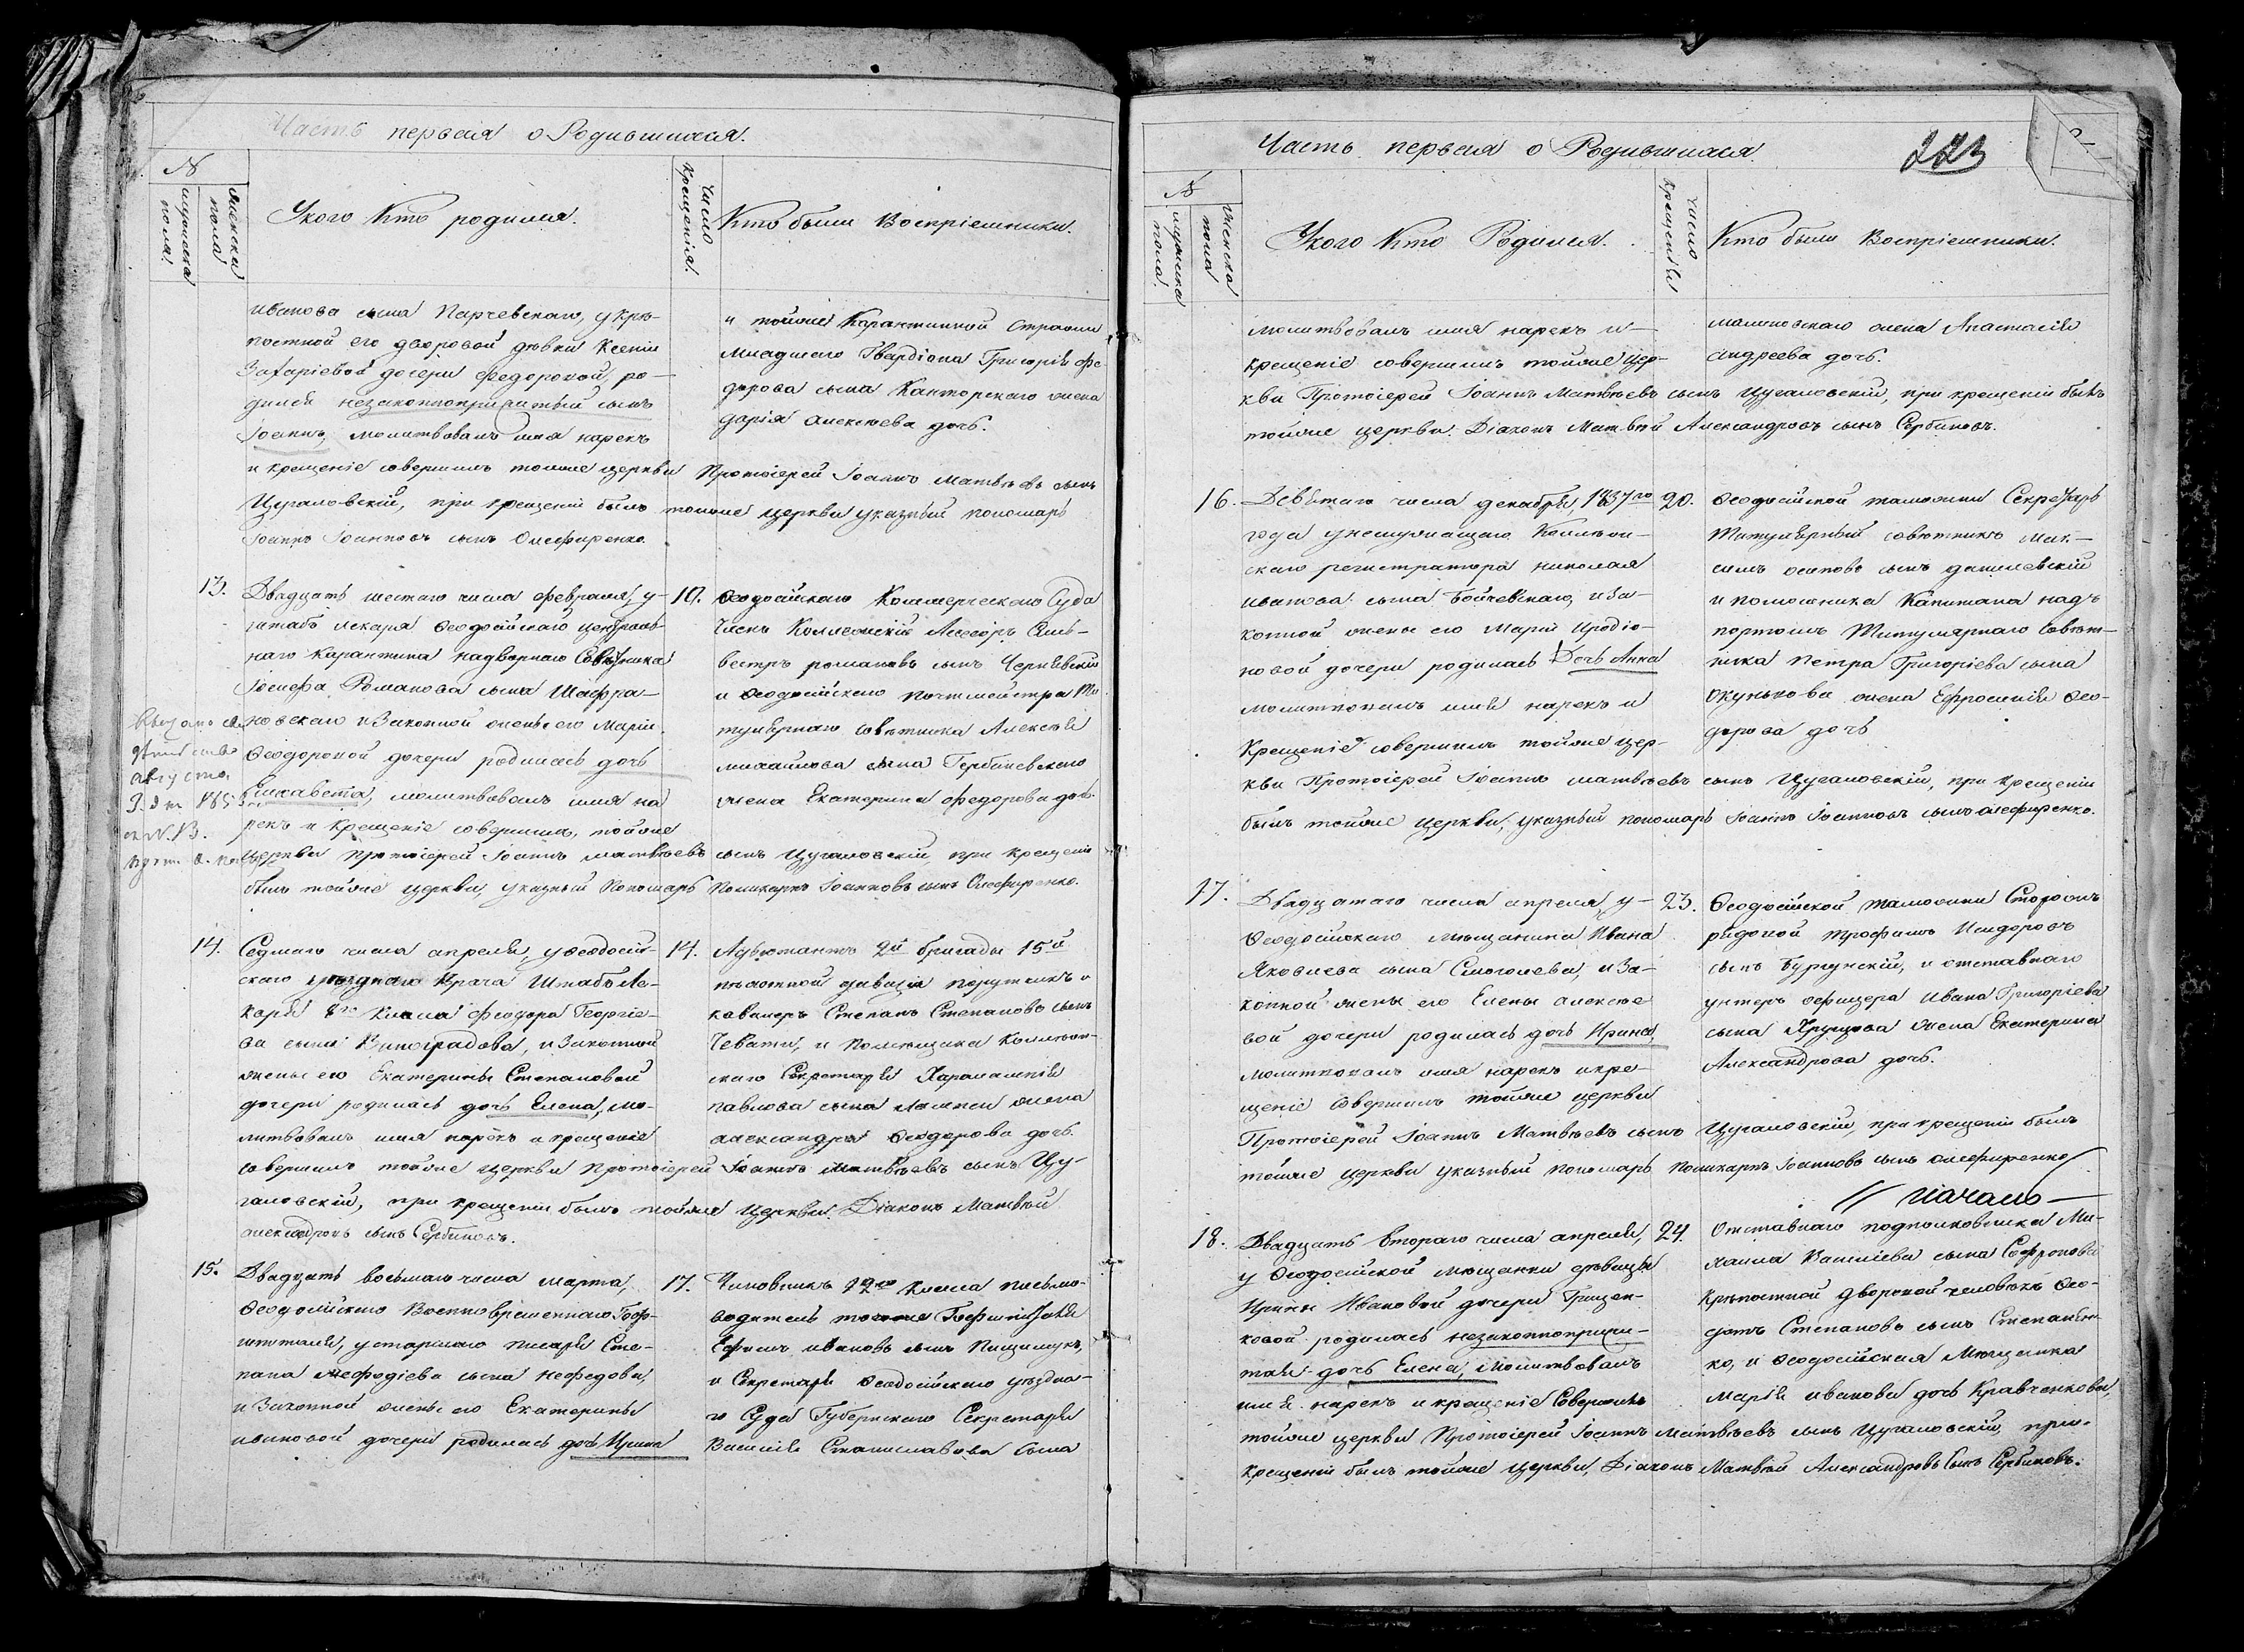 Часть первая о Родившихся.
№
мужеска пола.
женска пола
У кого кто родился.
Число Крещенія.
Кто были Воспріемники.
Иванова сына Парчевскаго, у крѣ-
постной его дворовой дѣвки Ксеніи
Захаріевой дочери Федоровой, ро-
дился незаконноприжитый сынъ
Іоаннъ, молитвовалъ имя нарекъ
и крещеніе совершилъ тойже церкви Протоіерей Іоаннъ Матвѣевъ сынъ
Цугаловскій, при крещеніи былъ тойже церкви указный пономарь
Іоаннъ Іоанновъ сынъ Олефиренко.
и тойже Карантинной Стражи
Младшего Гвардіона Григорія Фе-
дорова сына Канторскаго жена
Дарія Алексѣева дочь.
13. Двадцать шестаго числа февраля, у
штабъ лекаря Ѳеодосійскаго централь-
наго Карантина надворнаго Совѣтника
Іосифа Романова сына Шафра-
новскаго и Законной жены его Маріи
Ѳеодоровой дочери родилась дочь
Елисавета, молитвовалъ имя на
рекъ и крещеніе совершилъ, тойже
церкви протоіерей Іоаннъ Матвѣевъ сынъ Цугаловскій, при крещеніи
былъ тойже церкви, указный Пономарь Поликарпъ Іоанновъ сынъ Олефиренко.
10. Ѳеодосійскаго Коммерческаго Суда
Членъ Коллежскій Асессоръ Силь-
вестръ Романовъ сынъ Чернявскій
и Ѳеодосійскаго почтмейстра Ти
тулярнаго Совѣтника Алексѣя
Михайлова сына Гербаневскаго
жена Екатерина Федорова дочь.
Выдано
августа
14. Седмаго числа апрѣля, у Ѳеодосій-
скаго уѣзднаго Врача Штабъ ле-
каря 8го Класа Феодора Георгіе-
ва сына Виноградова, и Законной
жены его Екатерины Степановой
дочери родилась дочь Елена, мо-
литвовалъ имя нарекъ и крещеніе
совершилъ тойже церкви Протоіерей Іоаннъ Матвѣевъ сынъ Цу-
галовскій, при крещеніи былъ тойже церкви Діаконъ Матвѣй
Александровъ сынъ Сербиновъ.
14. Адъютантъ 2й бригады 15й
пѣхотной дивизіи поручикъ и
кавалеръ Степанъ Степановъ сынъ
Чеваты, и помѣщика Коллеж-
скаго Секретаря Харалампія
Павлова сына жена
Александра Ѳеодорова дочь.
15. Двадцать восьмаго числа марта,
Ѳеодосійскаго Военновременнаго Гоф-
шпиталя, у старшаго писаря Сте-
пана Мефодіева сына Нефедова,
и Законной жены его Екатерины
Ивановой дочери родилась дочь Ирина
17. Чиновникъ 12го Класса письмо-
водитель тогоже Гофшпиталя
Ефимъ Ивановъ сынъ Пищимукъ,
и Секретаря Ѳеодосійскаго уѣздна-
го Суда Губернскаго Секретаря
Василія Станиславова сына
Часть первая о Родившихся.
223
№
мужеска пола.
женска пола
У кого кто Родился.
Число Крещенія
Кто были Воспріемники.
молитвовалъ имя нарекъ и
крещеніе совершилъ тойже цер-
кви Протоіерей Іоаннъ Матвѣевъ сынъ Цугаловскій, при крещеніи былъ
тойже церкви. Діаконъ Матвѣй Александровъ сынъ Сербиновъ.
Малиновскаго жена Анастасія
Андреева дочь.
16. Девятаго числа декабря, 1837го
года у неслужащаго Коллеж-
скаго регистратора Николая
Иванова сына Бойчевскаго, и За-
конной жены его Маріи Иродіо-
новой дочери родилась Дочь Анна
молитвовалъ имя нарекъ и
Крещеніе совершилъ тойже цер-
кви Протоіерей Іоаннъ Матвѣевъ сынъ Цугаловскій, при крещеніи
былъ тойже церкви, указный пономарь Іоаннъ Іоанновъ сынъ Олефиренко.
20. Ѳеодосійской таможни Секретарь
Титулярный совѣтникъ Мак-
симъ Осиповъ сынъ Данилевскій
и помошника Капитана надъ
портомъ Титулярнаго Совѣт-
ника Петра Григоріева сына
Окунькова жена Ефросинія Ѳео-
дорова дочь
17. Двадцатаго числа апреля, у
Ѳеодосійскаго мѣщанина Ивана
Яковлева сына Смоголева, и За-
конной жены его Елены Алексѣе
вой дочери родилась дочь Ирина,
молитвовалъ имя нарекъ и кре-
щеніе совершилъ тойже церкви
Протоіерей Іоаннъ Матвѣевъ сынъ Цугаловскій, при крещеніи былъ
тойже церкви указный пономарь Поликарпъ Іоанновъ сынъ Олефиренко
23. Ѳеодосійской таможни Сторожъ
рядовой Трофимъ Исидоровъ
сынъ Бургунскій, и отставнаго
унтеръ офицера Ивана Григоріева
сына Хрущова жена Екатерина
Александрова дочь.
// начало
18. Двадцать втораго числа апрѣля,
у Ѳеодосійской мѣщанки дѣвицы
Ирины Ивановой дочери Грицен-
ковой родилась незаконноприжи-
тая дочь Елена, молитвовалъ
имя нарекъ и крещеніе Совершилъ
тойже церкви Протоіерей Іоаннъ Матвѣевъ сынъ Цугаловскій, при
крещеніи былъ тойже церкви, Діаконъ Матвѣй Александровъ Сынъ Сербиновъ.
24. Отставнаго подполковника Ми-
хаила Василіева сына Софронова
Крѣпостной дворовой человѣкъ Ѳео-
дотъ Степановъ сынъ Степанен-
ко, и Ѳеодосійская Мѣщанка
Марія Иванова дочь Кравченкова,